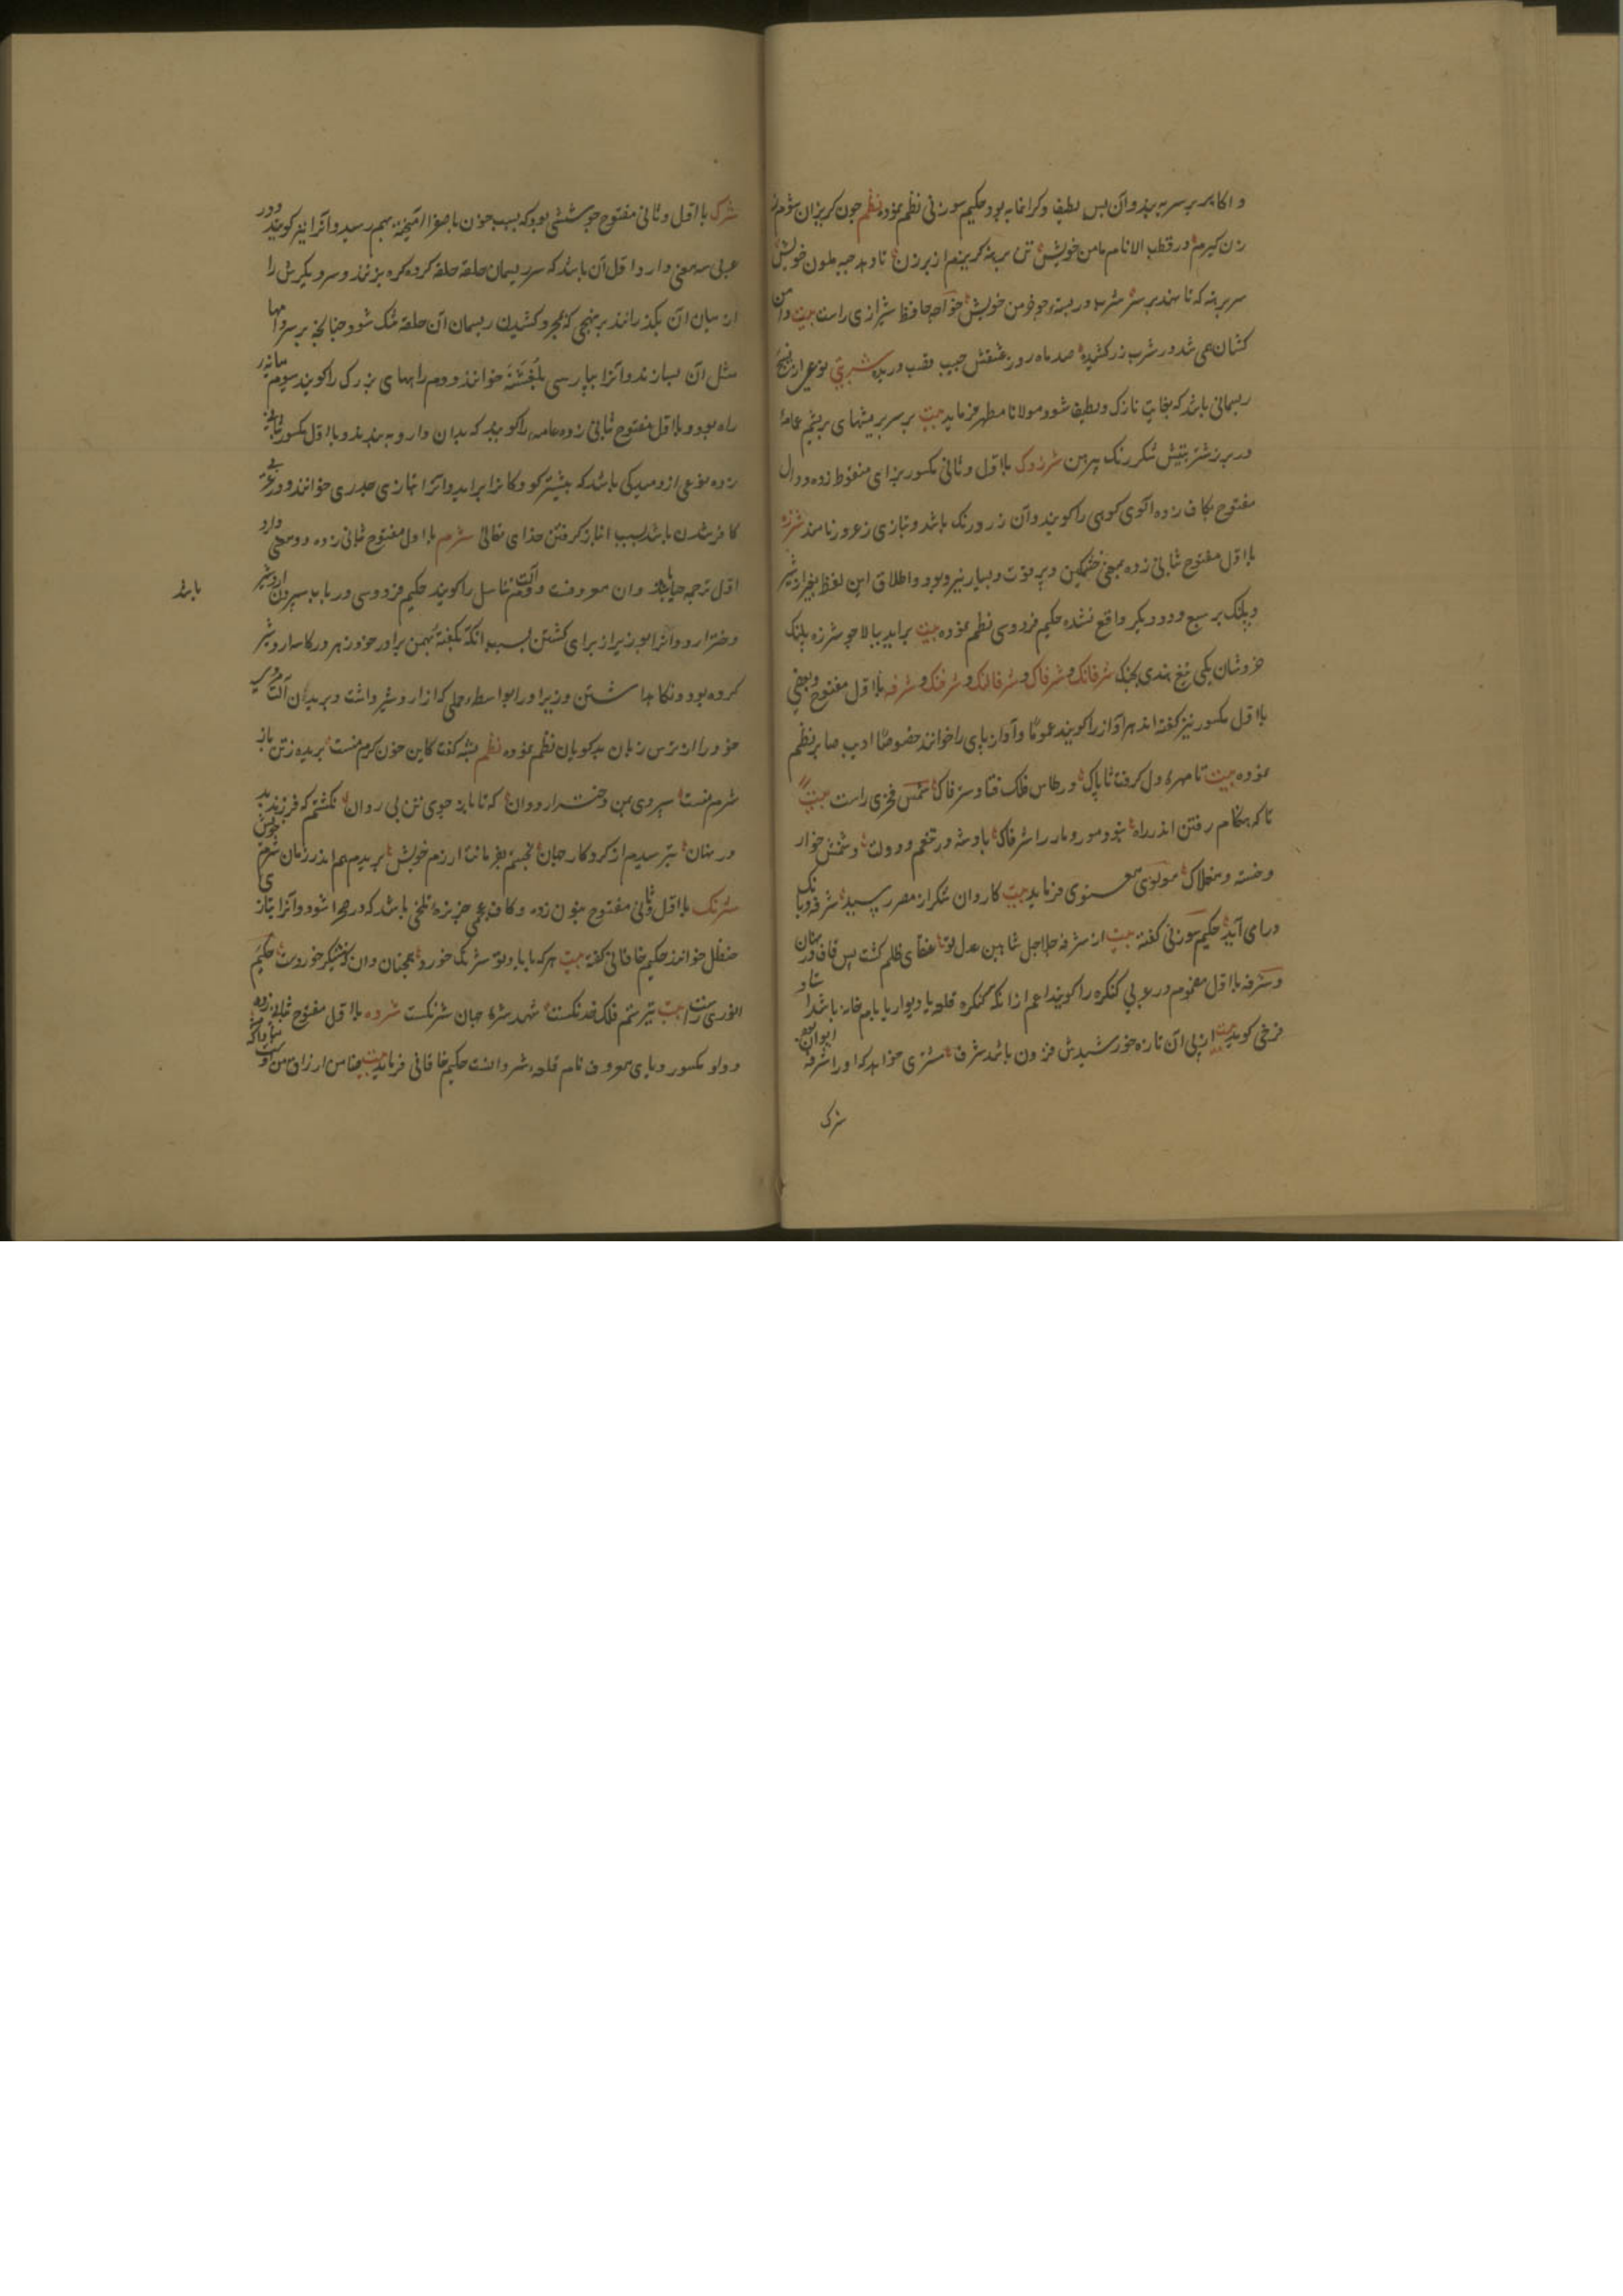 و اکابر بر سر بندند و آن بس لطیف و گرانمایه بود حکیم سوزنی نظم نموده نظم چون گریزان شوم
زن گیرم در قطب الانام مامن خویش تن برهنه گریزم از بر زن تا دهد جبه ملون خویش
سر برهنه که تا نهد بر سر شرب در بسته چو خرمن خویش خواجه حافظ شیرازی راست بیت دامن
کشان همی شد در شرب زرکشیده صد ماه رو ز عشقش جیب قصب دریده شربتی نوعی از نسج
ریسمانی باشد که بغایت نازک و لطیف شود مولانا مطهر فرماید بیت بر سر بریشهای بریشم عمامه
در بر ز شربتیش شکر رنگ پیرهن شرزدک باول و ثانی مکسور بزای منقوط زده و دال
مفتوح بکاف زده آلوی کوهی را گویند و آن زرد رنگ باشد و بتازی زعرور نامند شرزه
باول مفتوح بثانی زده بمعنی خشمگین و پر قوت و بسیار نیرو بود و اطلاق این لفظ بغیر از شیر
و پلنگ بر سبع و دد دیگر واقع نشده حکیم فردوسی نظم نموده بیت برآید ببالا چو شرزه پلنگ
خروشان یکی تیغ هندی بچنگ شرفانک و شرفاک و شرفالک و شرفنک و شرفه باول مفتوح و بعضی
باول مکسور نیز گفته‌اند هر آواز را گویند عموماً و آواز پای را خوانند خصوصاً ادیب صابر نظم
نموده بیت تا مهره دل گرفت ناپاک در طاس فلک فتاد شرفاک شمس فخری راست بیت
تا که هنگام رفتن اندر راه نبود مور و مار را شرفاک باد شه در تنعم و دولت دشمنش خوار
و خسته و مغلاک مولوی معنوی فرماید بیت کاروان شکر از مصر رسید شرفه و بانک
درای آید حکیم سوزنی گفته بیت از شرفه جلاجل شاهین عدل تو عنقای ظلم گشت پس قاف در نهان
و شرفه باول مضموم در عربی کنگره را گویند اعم از آنکه کنگره قلعه یا دیوار یا بام خانه باشد استاد
فرخی گوید بیت از پی آن تازه خورشیدش فزون باشد شرف مشتری خواهد که او را شرفه ایوان بود
شرک
شرک باول و ثانی مفتوح جوششی بود که بسبب خون با صفرا آمیخته بهم رسید و آنرا نیز گویند و در
عربی سه معنی دارد اول آن باشد که سر ریسمان حلقه حلقه کرده گره بزنند و سر دیگرش را
از میان آن بگذرانند بر نهجی که بمجرد کشیدن ریسمان آن حلقه تنگ شود چنانچه بر سر دامها
مثل آن بسازند و آنرا بپارسی خوانند دوم راههای بزرگ را گویند سوم میانه
راه بود و باول مفتوح بثانی زده عامه را گویند که بدان دارو به بندند و باول مکسور بثانی
زده نوعی از دمیدگی باشد که بیشتر کودکان را برآید و آنرا بتازی جدری خوانند و در عربی
کافر شدن باشد بسبب انباز گرفتن خدای تعالی شرم باول مفتوح بثانی زده دو معنی دارد
اول ترجمه حیا باشد و آن معروفست دوم آلت تناسل را گویند حکیم فردوسی در باب سپردن اردشیر
باشد
دختر اردوان را بوزیر از برای کشتن بسبب آنکه بگفته بهمن برادر خود زهر در کاسه اردشیر
کرده بود و نگاه داشتن وزیر او را بواسطه حملی که از اردشیر داشت و بریدن آلت مردی
خود را از ترس زبان بدگویان نظم نموده نظم بشه گفت کاین خون گرم منست بریده ز تن باز
شرم منست سپردی بمن دختر اردوان که تا باز جوی تن بی روان نکشتم که فرزند بد
در نهان بترسیدم از کردگار جهان بجستم بفرمانت آزرم خویش بریدم هم اندر زمان شرم خویش
شرنک باول و ثانی مفتوح بنون زده و کاف عجمی خربزه تلخی باشد که در صحرا شود و آنرا بتازی
حنظل خوانند حکیم خاقانی گفته بیت هر که با یاد تو شرنک خورد همچنان دان که نیشکر خوردست حکیم
انوری راست بیت تیر ستم فلک خدنگست شهد شره جهان شرنگست شروه باول مفتوح بثانی زده
و واو مکسور و یای معروف نام قلعه شروانست حکیم خاقانی فرماید بیت